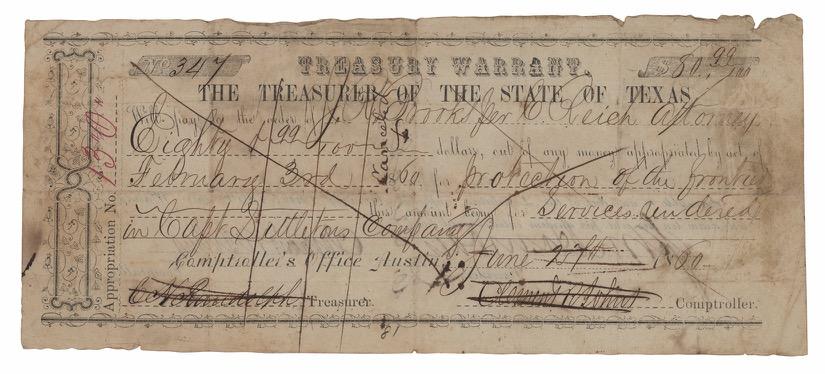 No. 347 TREASURY WARRANT. $80.99/100
THE TREASURER OF THE STATE OF TEXAS
Will pay to the order of Brooks per C Reich Attorney
Eighty & 99/100 dollars, out of any money appropriated by act of
February 3rd 1860 for protection of the frontier
this amount being for Services rendered
in Capt Littletons Company
Comptroller's Office Austin, June 27th 1860
C H Randolph Treasurer. Clement R Johns Comptroller.
Appropriation No. 1340
Cancelled